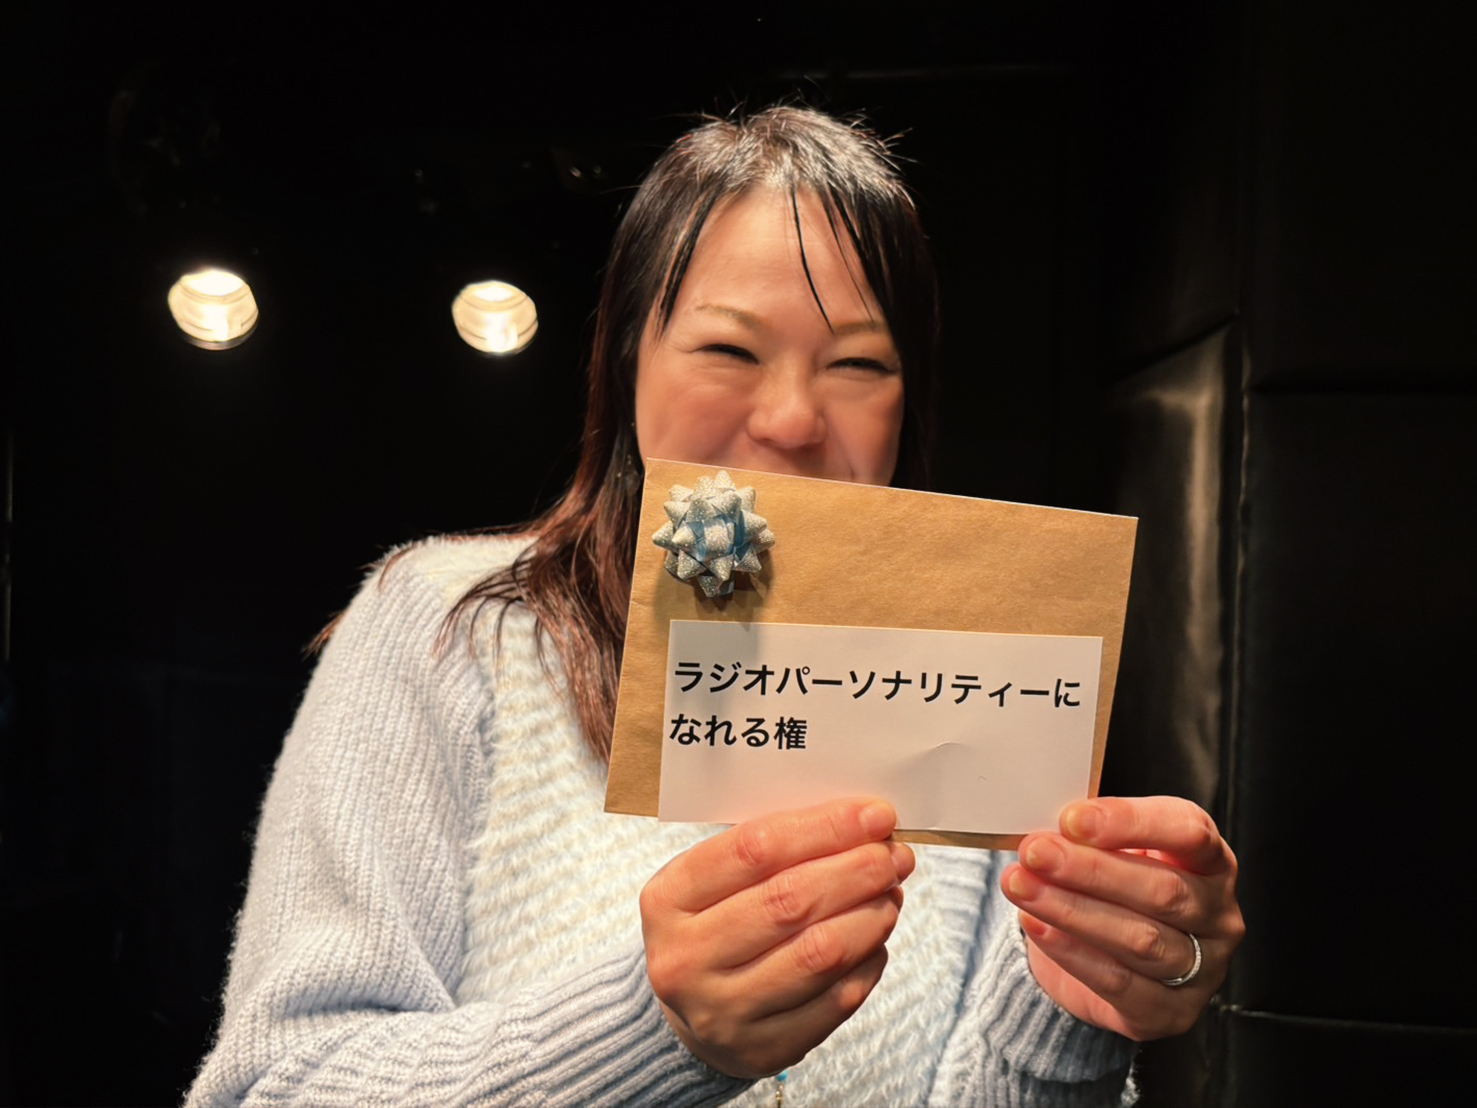 ラジオパーソナリティーに
なれる権